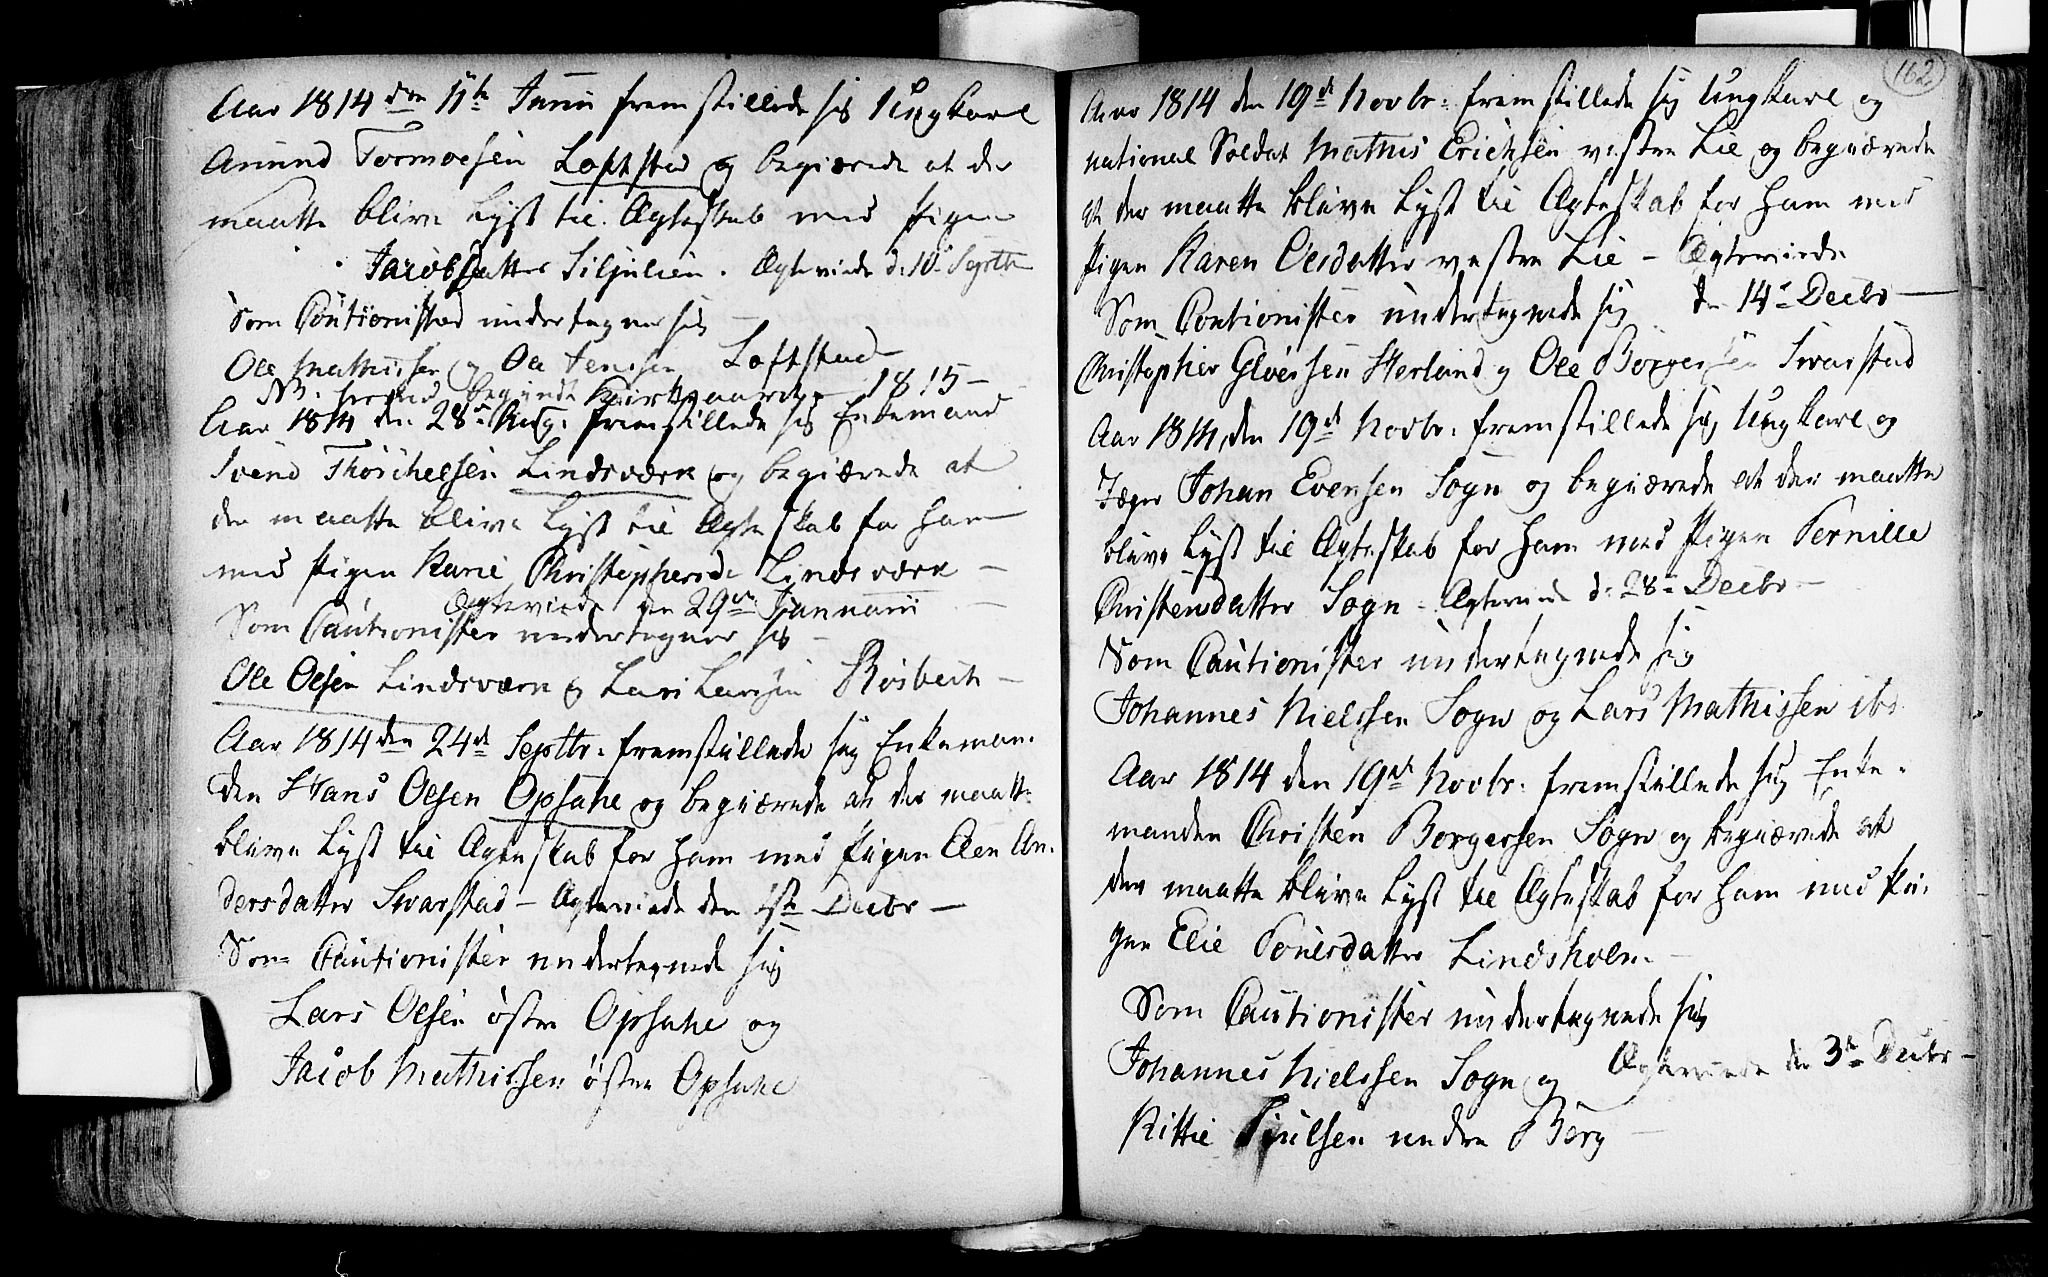 Aar 1814 den 11te Junii fremstillede sig Ungkarl
Amund Tormoesen Loftstad og begiærede at der
maatte blive Lyst til Ægteskab med Pigen
Jacobsdatter Siljulien. Ægteviede d: 10de Septbr
Som Coutionister undertegner sig
Ole Mathissen og Ole Jensen Loftstad
NB. herved begynder Kirkeaaret 1815 -
Aar 1814 den 28de Aug. fremstillede sig Enkemand
Svend Thorchelsen Lindsværn og begiærede at
der maatte blive Lyst til Ægteskab for ham
med Pigen Karie Christophersdr Lindsværn -
Ægteviede den 29de Januarii
Som Cautionister undertegner sig -
Ole Olsen Lindsværn og Lars Larsen Rosbech -
Aar 1814 den 24de Septbr. fremstillede sig Enkeman-
den Hans Olsen Opsahl og begiærede at der maatte
blive Lyst til Ægteskab for ham med Pigen Aen An-
dersdatter Svarstad - Ægteviede den 1ste Decbr -
Som Cautionister undertegnede sig
Lars Olsen østre Opsahl og
Jacob Mathissen østre Opsahl
162
Aar 1814 den 19de Novbr. fremstillede sig Ungkarl og
national Soldat Mathis Erichsen vestre Lie og begiærede
at der maatte blive Lyst til Ægteskab for ham med
Pigen Karen Olsdatter vestre Lie - Ægteviede
Som Coutionister undertegnede sig den 14de Decbr -
Christopher Gloersen Herland og Ole Borgersen Svarstad
Aar 1814, den 19de Novbr. fremstillede sig Ungkarl og
Jæger Johan Evensen Sogn og begiærede at der maatte
blive Lyst til Ægteskab for ham med Pigen Pernille
Christensdatter Sogn - Ægteviede d: 28de Decbr -
Som Cautionister undertegnede sig
Johannes Nielssen Sogn og Lars Mathissen ibd
Aar 1814 den 19de Novbr. fremstillede sig Enke-
manden Christen Borgersen Sogn og begiærede at
der maatte blive Lyst til Ægteskab for ham med Pi-
gen Elie Povelsdatter Lindsholm. -
Som Cautionister undertegnede sig
Johannes Nielssen Sogn og Ægteviede den 3de Decbr -
Kittil Poulsen nedre Berg -